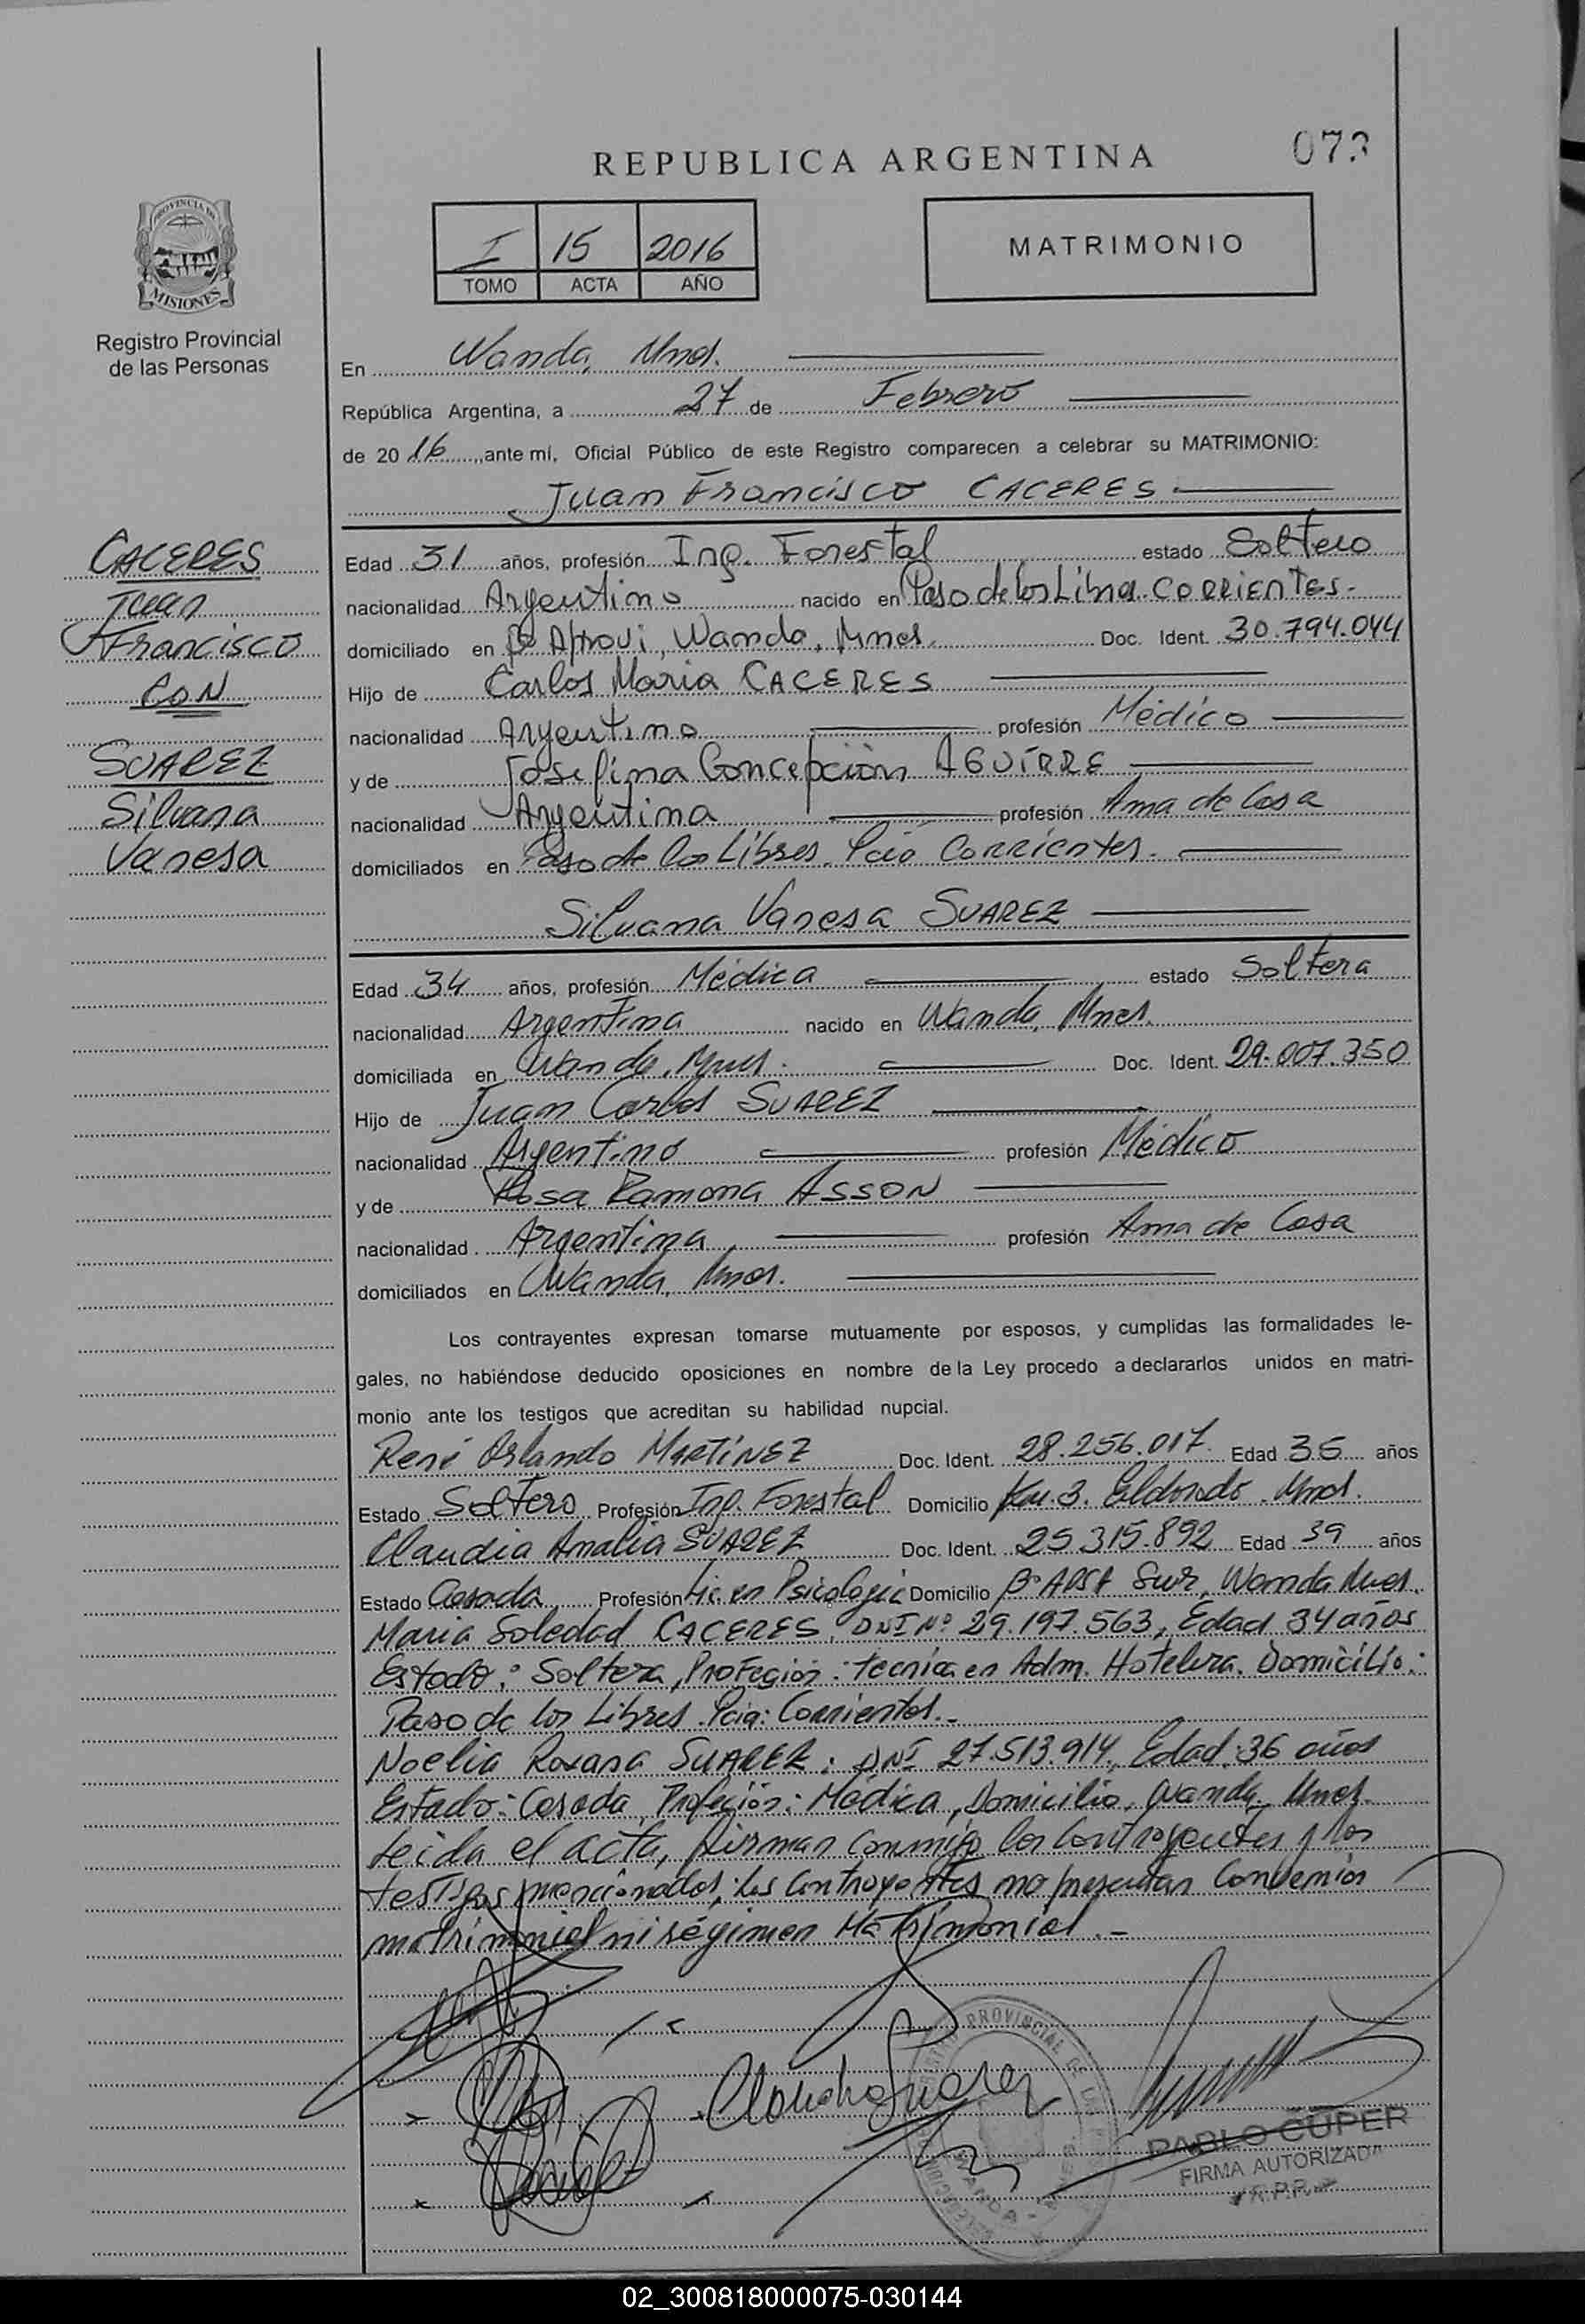 REPUBLICA ARGENTINA
073
PROVINCIA DE
MISIONES
Registro Provincial
de las Personas
I 15 2016
TOMO ACTA AÑO
MATRIMONIO
En Wanda, Mnes.
República Argentina, a 27 de Febrero
de 2016, ante mí, Oficial Público de este Registro comparecen a celebrar su MATRIMONIO:
Juan Francisco CACERES
CACERES
Juan
Francisco
CON
SUAREZ
Silvana
Vanesa
Edad 31 años, profesión Ing. Forestal estado Soltero
nacionalidad Argentino nacido en Paso de los Libres. CORRIENTES.-
domiciliado en Wanda, Mnes. Doc. Ident. 30.794.044
Hijo de Carlos Maria CACERES
nacionalidad Argentino profesión Médico
y de Josefina Concepción AGUIRRE
nacionalidad Argentina profesión Ama de Casa
domiciliados en Paso de los Libres. Pcia Corrientes.
Silvana Vanesa SUAREZ
Edad 34 años, profesión Médica estado Soltera
nacionalidad Argentina nacido en Wanda, Mnes.
domiciliada en Wanda, Mnes. Doc. Ident. 29.007.350
Hijo de Juan Carlos SUAREZ
nacionalidad Argentino profesión Médico
y de Rosa Ramona ASSON
nacionalidad Argentina profesión Ama de Casa
domiciliados en Wanda, Mnes.
Los contrayentes expresan tomarse mutuamente por esposos, y cumplidas las formalidades le-
gales, no habiéndose deducido oposiciones en nombre de la Ley procedo a declararlos unidos en matri-
monio ante los testigos que acreditan su habilidad nupcial.
René Orlando MARTÍNEZ Doc. Ident. 28.256.017 Edad 35 años
Estado Soltero Profesión Ing. Forestal Domicilio Km. 3. Eldorado. Mnes.
Claudia Analia SUAREZ Doc. Ident. 25.315.892 Edad 39 años
Estado Casada Profesión Lic. en Psicología Domicilio Bº APSA Sur, Wanda Mnes.
Maria Soledad CACERES, DNI Nº 29.197.563, Edad 34 años
Estado: Soltera, Profeción: Tecnica en Adm. Hotelera. Domicilio:
Paso de los Libres. Pcia: Corrientes.-
Noelia Roxana SUAREZ: DNI 27.513.914, Edad: 36 años
Estado: Casada, Profeción: Médica, Domicilio, Wanda, Mnes.
Leida el acta, firman conmigo los contrayentes y los
testigos mencionados; Los Contrayentes no presentan Convención
matrimonial ni régimen Matrimonial.-
Claudia Suarez
PABLO CUPER
FIRMA AUTORIZADA
R.P.P.
02_300818000075-030144